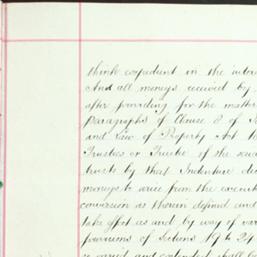 think expedient in the inter
And all moneys received by
after providing for the matter
paragraphs of Clause 8 of
and Law of Property Act
Trustees or Trustee of the said
trusts by that Indenture dec
moneys to arise from the
conversion as therein defined and
take effect as and by way of var
provisions of Sections 19 to 24
so varied and extended shall be